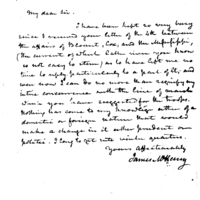 My dear Sir.
I have been kept so very busy
since I received your letter of the 4th between
the affairs of Blount, Cox, and the Mississippi,
(the current of which latter even you know
is not easy to stem) as to have left me no
time to reply particularly to a part of it; and
even now I can do no more than signify my
entire concurrence with the line of march
which you have suggested for the troops.
Nothing has come to my knowledge either of a
domestic or foreign nature that would
make a change in it either prudent or
politic. I long to get into winter quarters.
Yours affectionately
James McHenry